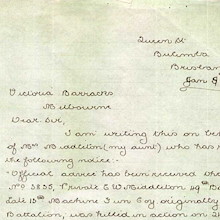 Queen St
Bulimba
Brisban
Jan 9
Victoria Barracks
Melbourne
Dear Sir,
I am writing this on be
of Mrs Middleton (my aunt) who has r
the following notice:-
"Official advice has been received wh
No 3835, Private E W Middleton 49th B
Late 15th Machine Gun Coy originally
Battalion, was killed in action on 2